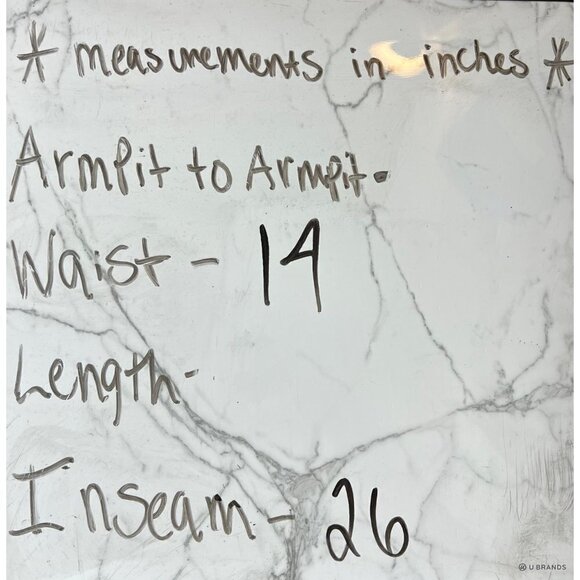 * measurements in inches *
Armpit to Armpit-
Waist - 14
Length-
Inseam - 26
U BRANDS